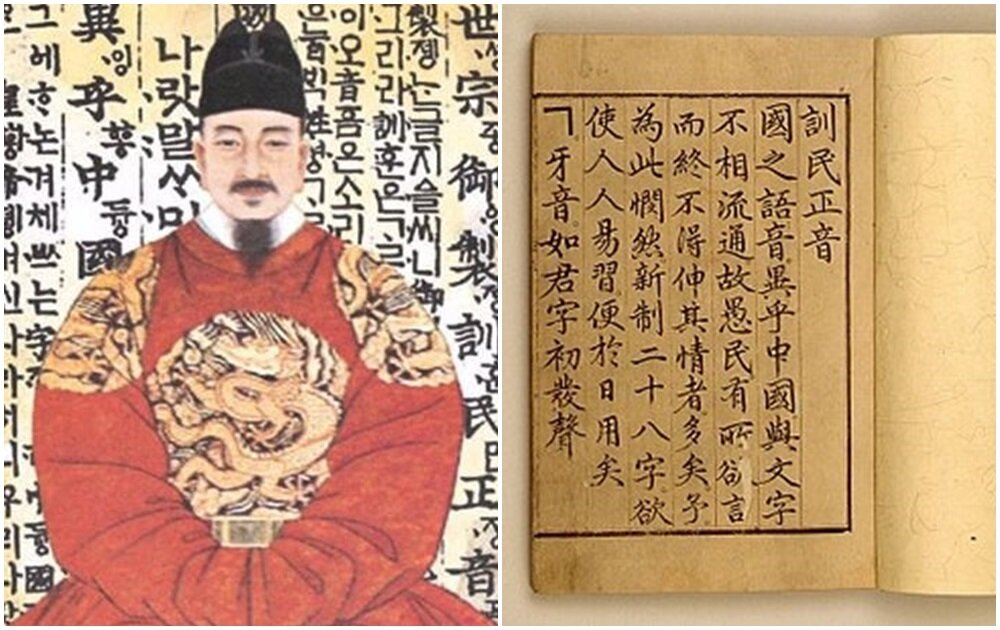 世宗御製訓民正音
製졩는글지슬씨니御
그리라訓훈은
이오音ᅙᅳᆷ은소리
나랏말ᄊᆞ미
異잉乎ᅘᅩᆼ中듕國
에ᄒᆞ논겨체ᄡᅳ는字
訓民正音
國之語音異乎中國與文字
不相流通故愚民有所欲言
而終不得伸其情者多矣予
為此憫然新制二十八字欲
使人人易習便於日用矣
ㄱ牙音。如君字初發聲